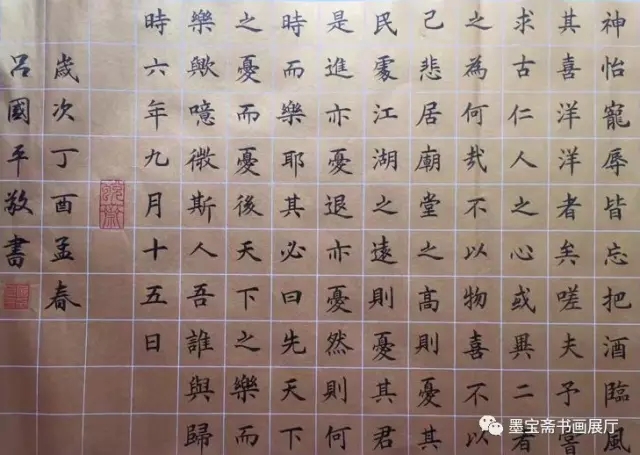 神怡寵辱皆忘把酒臨風
其喜洋洋者矣嗟夫予嘗
求古仁人之心或異二者
之為何哉不以物喜不以
己悲居廟堂之高則憂其
民處江湖之遠則憂其君
是進亦憂退亦憂然則何
時而樂耶其必曰先天下
之憂而憂後天下之樂而
樂歟噫微斯人吾誰與歸
時六年九月十五日
歲次丁酉孟春
呂國平敬書
墨宝斋书画展厅